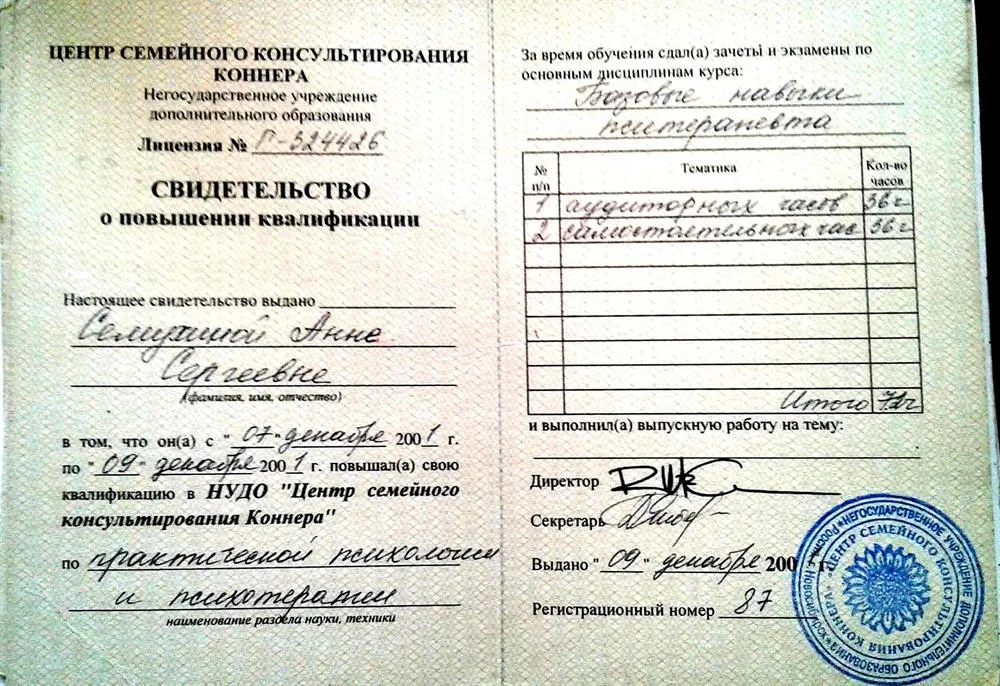 ЦЕНТР СЕМЕЙНОГО КОНСУЛЬТИРОВАНИЯ
КОННЕРА
Негосударственное учреждение
дополнительного образования
Лицензия № Г-324426
СВИДЕТЕЛЬСТВО
о повышении квалификации
Настоящее свидетельство выдано
Семухиной Анне
Сергеевне
(фамилия, имя, отчество)
в том, что он(а) с "07" декабря 2001 г.
по "09" декабря 2001 г. повышал(а) свою
квалификацию в НУДО "Центр семейного
консультирования Коннера"
по практической психологии
и психотерапии
наименование раздела науки, техники
За время обучения сдал(а) зачеты и экзамены по
основным дисциплинам курса:
Базовые навыки
пситерапевта
№ п/п Тематика Кол-во часов
1 аудиторных часов 36 г
2 самостоятельных час 36 г
Итого 72 г
и выполнил(а) выпускную работу на тему:
Директор
Секретарь
Выдано "09" декабря 200 г.
Регистрационный номер 87
НЕГОСУДАРСТВЕННОЕ УЧРЕЖДЕНИЕ ДОПОЛНИТЕЛЬНОГО ОБРАЗОВАНИЯ * РОССИЯ, г. НОВОСИБИРСК *
"ЦЕНТР СЕМЕЙНОГО КОНСУЛЬТИРОВАНИЯ КОННЕРА"